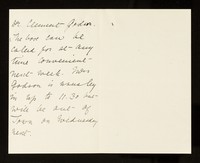 Mr Clement Godson.
The box can be
called for at any
time convenient
next week. Mrs
Godson is usually
in up to 11.30 but
will be out of
Town on Wednesday
next.